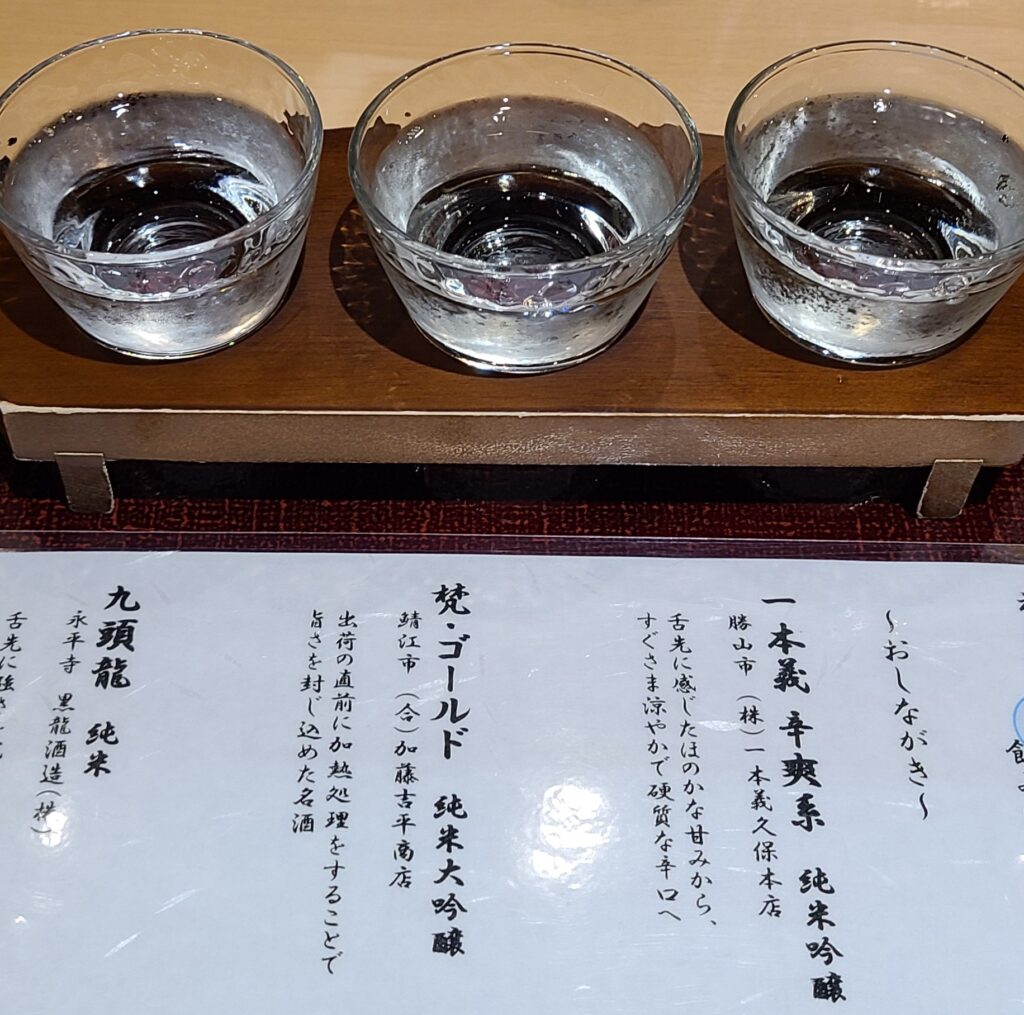 ～おしながき～
一本義 辛爽系 純米吟醸
勝山市 （株）一本義久保本店
舌先に感じたほのかな甘みから、
すぐさま涼やかで硬質な辛口へ
梵・ゴールド 純米大吟醸
鯖江市 （合）加藤吉平商店
出荷の直前に加熱処理をすることで
旨さを封じ込めた名酒
九頭龍 純米
永平寺 黒龍酒造（株）
舌先に